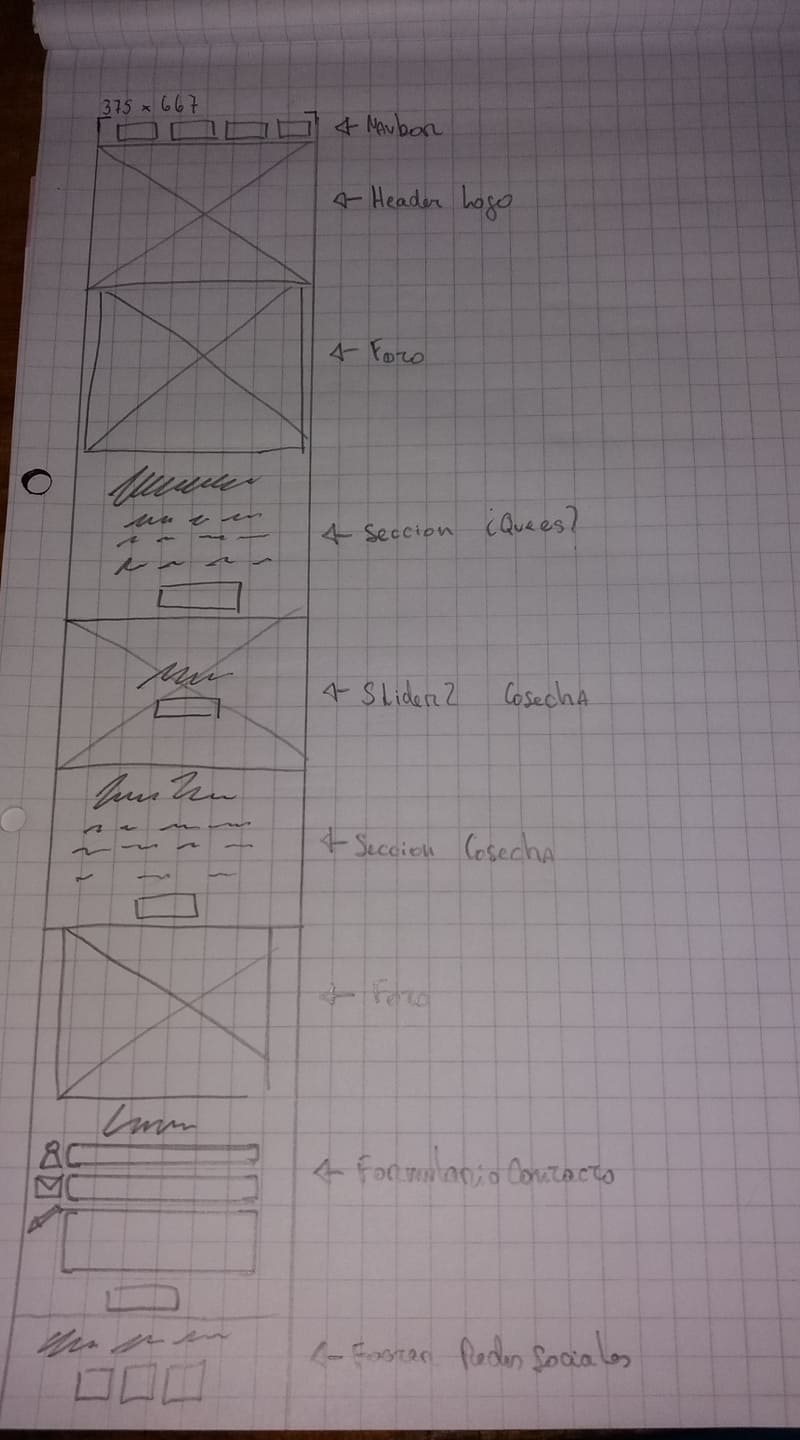 375 x 667
Navbar
Header Logo
Foto
Seccion ¿Que es?
Slider 2 Cosecha
Seccion Cosecha
Foto
Formulario Contacto
Footer Redes Sociales